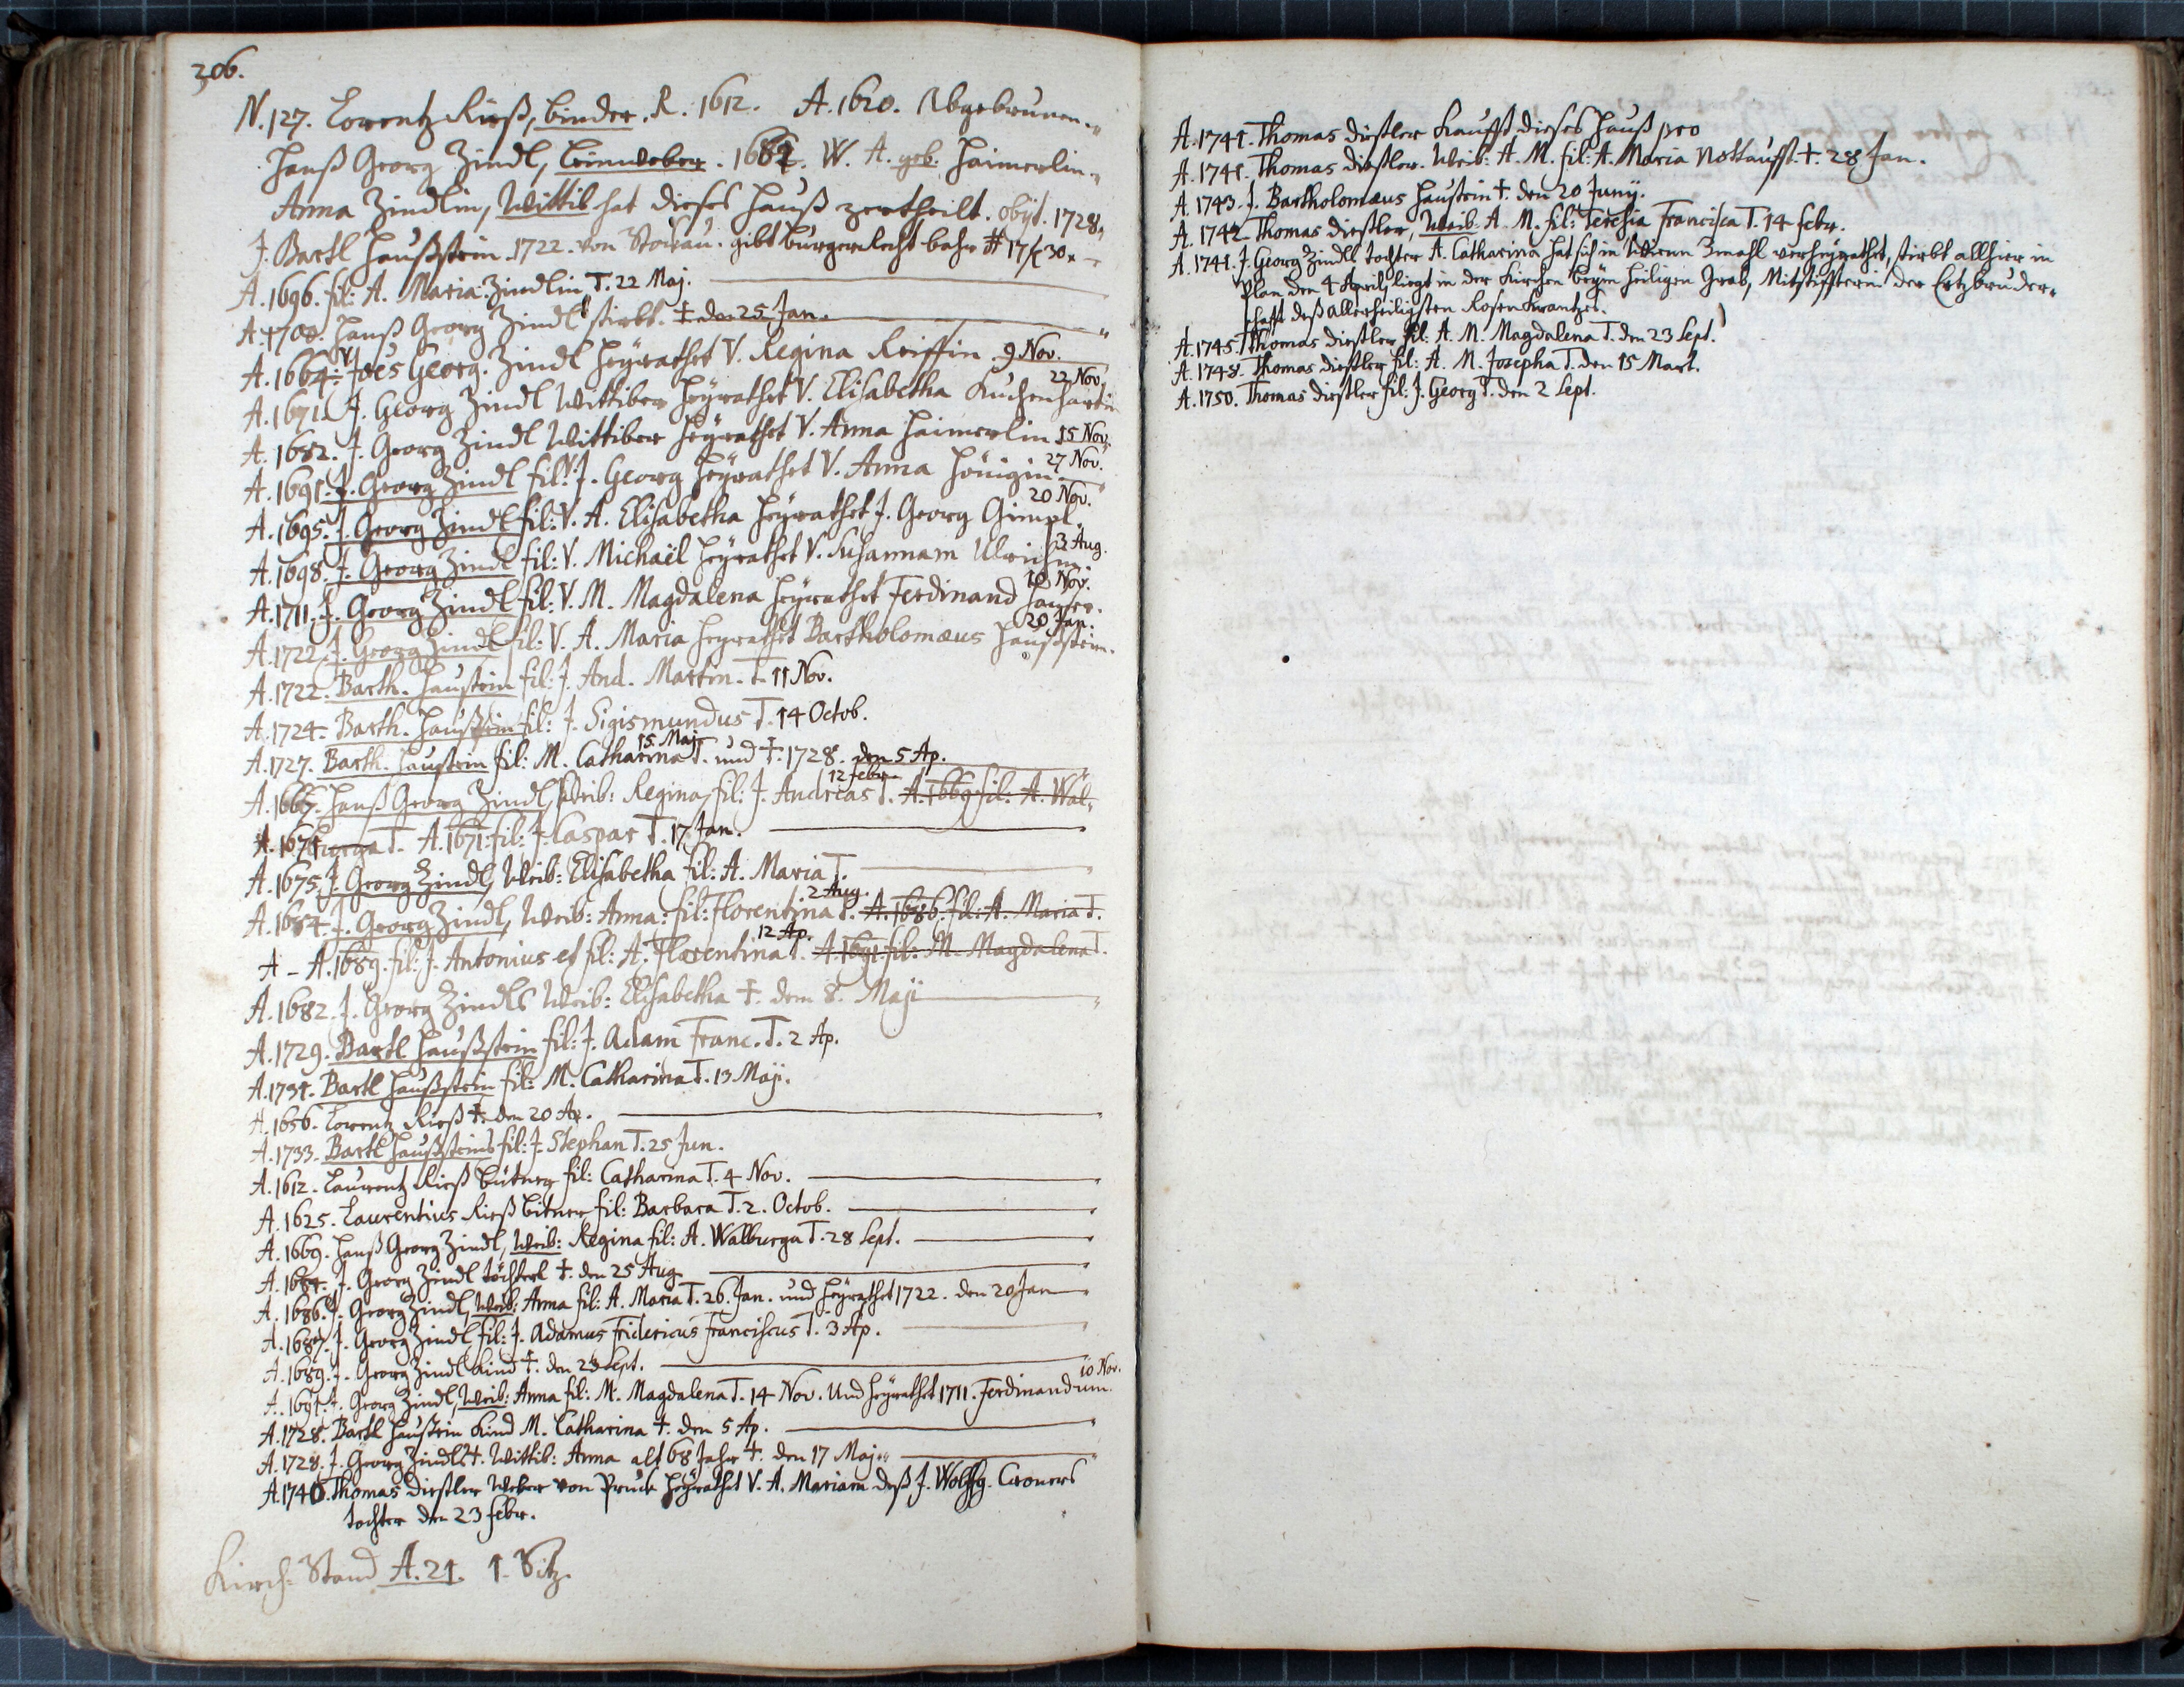 306.
N. 127. Lorentz Rieß, binder. R. 1612. A. 1620. Abgebrunnen.
Hanß Georg Zindl, leinweber. 1682. W. A. geb. Haimerlin.
Anna Zindlin, Wittib hat dieses Hauß zertheilt. obijt. 1728.
J. Bartl Haußstein. 1722. von Stokau. gibt burgerrecht bahr # 17 f 30 x
A. 1696. fil: A. Maria Zindlin T. 22 Maj.
A. 1700. Hanß Georg Zindl stirbt. † den 25 Jan.
A. 1664. Joes Georg. Zindl heÿrathet V. Regina Reissin 9 Nov.
22 Nov.
A. 1671. J. Georg Zindl Wittiber heÿrathet V. Elisabetha Kuchenhartin
A. 1682. J. Georg Zindl Wittiber heÿrathet V. Anna Haimerlin 15 Nov.
27 Nov.
A. 1691. J. Georg Zindl fil: V. J. Georg heÿrathet V. Anna Hönigin
20 Nov.
A. 1695. J. Georg Zindl fil: V. A. Elisabetha heÿrathet J. Georg Gimpl.
3 Aug.
A. 1698. J. Georg Zindl fil: V. Michaël heÿrathet V. Susannam Ulrichin.
10 Nov.
A. 1711. J. Georg Zindl fil: V. M. Magdalena heÿrathet Ferdinand Hauser.
20 Jan.
A. 1722. J. Georg Zindl fil: V. A. Maria heÿrathet Bartholomæus Haußstein.
A. 1722. Barth. Haustein fil: J. And. Martin. T. 11 Nov.
A. 1724. Barth. Haußstein fil: J. Sigismundus T. 14 Octob.
15 Maj
A. 1727. Barth. Haustein fil: M. Catharina T. und † 1728. den 5 Ap.
12 febr.
A. 1667. Hanß Georg Zindl, Weib: Regina, fil: J. Andreas T. A. 1669 fil: A. Wal-
A. 1671 burga T. A. 1671. fil: J. Caspar T. 17 Jan.
A. 1675. J. Georg Zindl, Weib: Elisabetha fil: A. Maria T.
2 Aug.
A. 1684. J. Georg Zindl, Weib: Anna: fil: Florentina T. A. 1686. fil: A. Maria T.
12 Ap.
A - A. 1689. fil: J. Antonius et fil: A. Florentina T. A. 1691. fil: M. Magdalena T.
A. 1682. J. Georg Zindls Weib: Elisabetha †. dem 8. Maji
A. 1729. Bartl Haußstein fil: J. Adam Franc. T. 2 Ap.
A. 1731. Bartl Haußstein fil: M. Catharina T. 13 Maji.
A. 1656. Lorentz Rieß †. den 20 Ap.
A. 1733. Bartl Haußsteins fil: J. Stephan T. 25 Jun.
A. 1612. Laurentz Rieß bütner fil: Catharina T. 4 Nov.
A. 1625. Laurentius Rieß bitner fil: Barbara T. 2. Octob.
A. 1669. Hanß Georg Zindl, Weib: Regina fil: A. Walburga T. 28 Sept.
A. 1684. J. Georg Zindl töchterl †. den 25 Aug.
A. 1686. J. Georg Zindl, Weib: Anna fil: A. Maria T. 26. Jan. und heÿrathet 1722. den 20 Jan
A. 1687. J. Georg Zindl, fil: J. Adamus Fridericus Franciscus T. 3 Ap.
A. 1689. J. Georg Zindl kind †. den 23 Sept.
10 Nov.
A. 1691. J. Georg Zindl, Weib: Anna fil: M. Magdalena T. 14 Nov. Und heÿrathet 1711. Ferdinandum.
A. 1728. Bartl Haustein kind M. Catharina †. den 5 Ap.
A. 1728. J. Georg Zindls †. Wittib: Anna alt 68 Jahr †. den 17 Maj.
A. 1740. Thomas Diestler Weber von Pruck heÿrathet V. A. Mariam deß J. Wolffg. Croners
tochter den 23 febr.
Kirch-Stand A. 21. 1. Sitz.
A. 1741. Thomas Diestler kaufft dieses Hauß pro
A. 1741. Thomas Diestler. Weib: A. M. fil: A. Maria Nottaufft. †. 28 Jan.
A. 1743. J. Bartholomæus Haustein †. den 20 Junij.
A. 1742 Thomas Diestler, Weib: A. M. fil: Teresia Francisca T. 14 febr.
A. 1741. J. Georg Zindls tochter A. Catharina hat sich in Wienn 3mahl verheÿrathet, stirbt allhier in
Plan den 4 April, liegt in der Kirchen beÿm heiligen Grab, Mitstiffterin der Ertzbruder-
schafft deß allerheiligsten Rosenkrantzes.
A. 1745. Thomas Diestler fil: A. M. Magdalena T. den 23 Sept.
A. 1748. Thomas Diestler fil: A. M. Josepha T. den 15 Mart.
A. 1750. Thomas Diestler fil: J. Georg T. den 2 Sept.